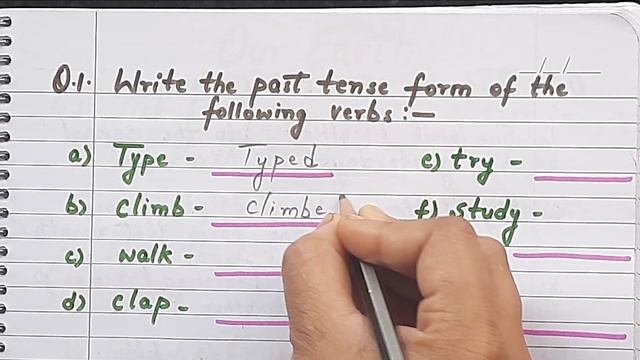 Q.1. Write the past tense form of the
following verbs:-
a) Type - Typed
e) try -
b) climb - climbe
f) study -
c) walk -
d) clap -